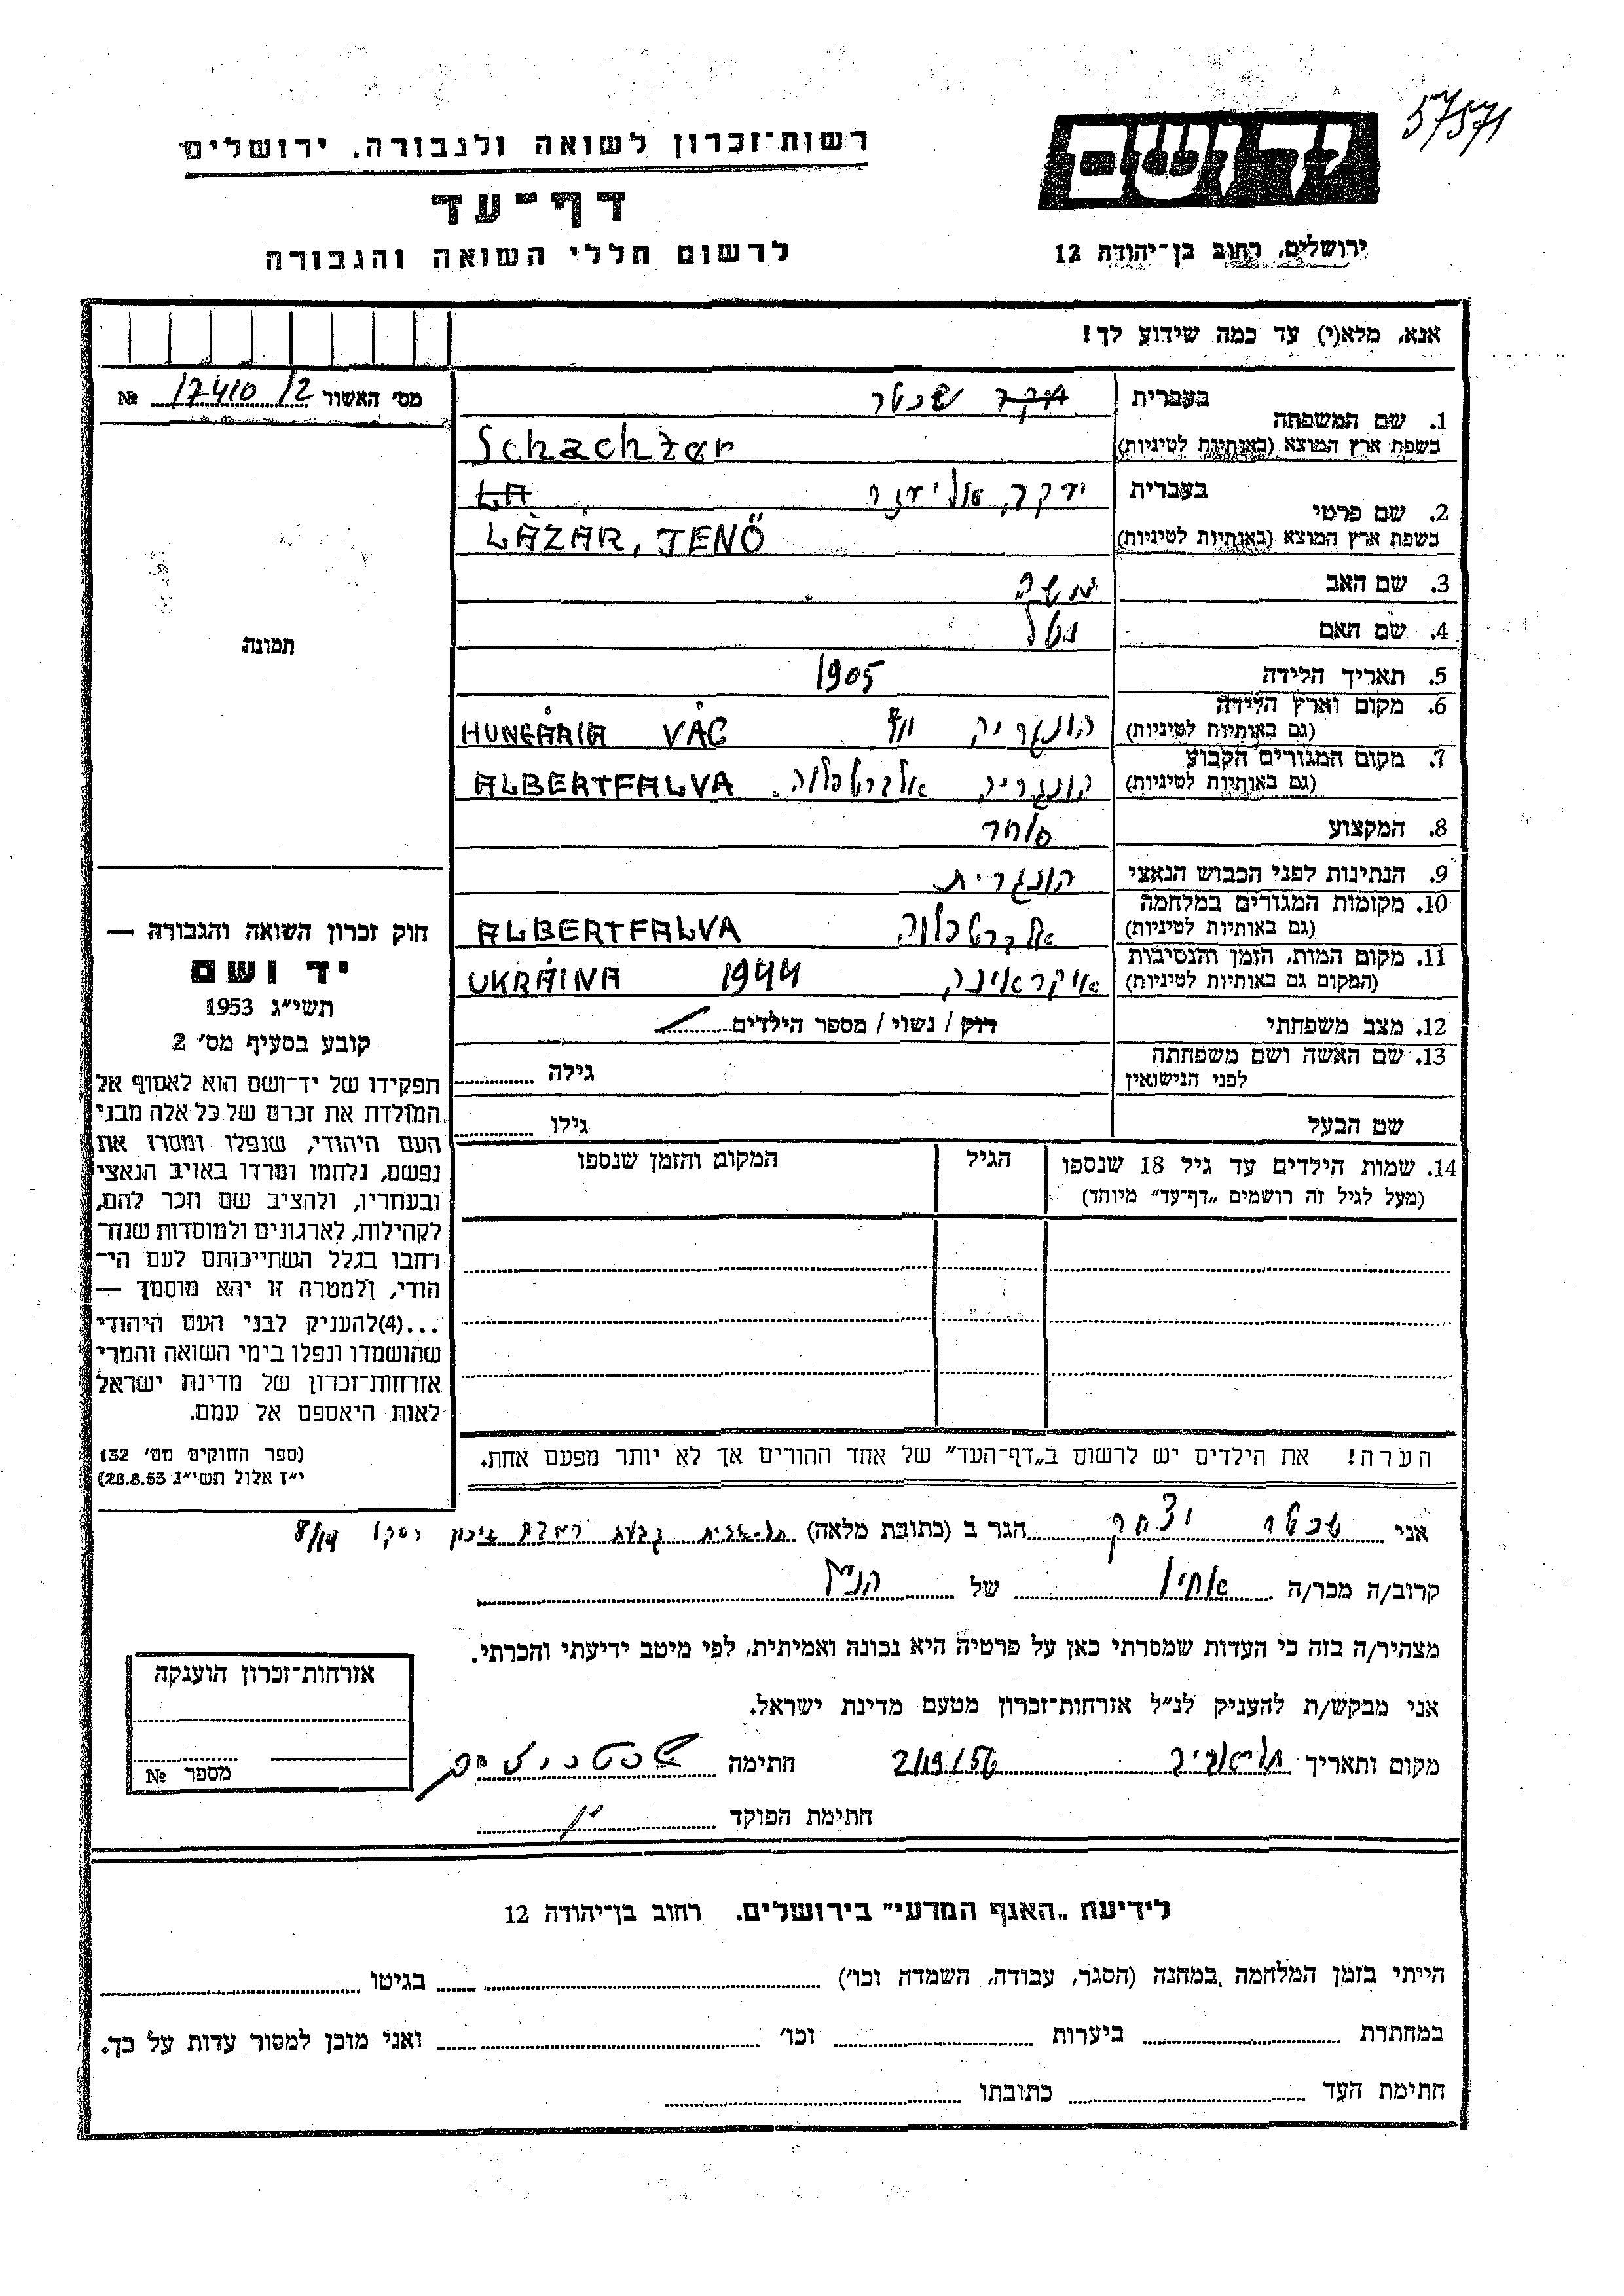 57571
ידושם
רשות־זכרון לשואה ולגבורה, ירושלים
דף־עד
לרשום חללי השואה והגבורה
ירושלים, רחוב בן־יהודה 12
אנא, מלא(י) עד כמה שידוע לך!
מס׳ האשור 17410/2 №
תמונה
1. שם המשפחה בעברית שכטר
בשפת ארץ המוצא (באותיות לטיניות) Schachter
2. שם פרטי בעברית יעקב, אליעזר
בשפת ארץ המוצא (באותיות לטיניות) LÁZÁR, JENŐ
3. שם האב משה
4. שם האם
5. תאריך הלידה 1905
6. מקום וארץ הלידה
(גם באותיות לטיניות) הונגריה HUNGÁRIA VÁC
7. מקום המגורים הקבוע
(גם באותיות לטיניות) הונגריה אלברטפלוה. ALBERTFALVA
8. המקצוע סוחר
9. הנתינות לפני הכבוש הנאצי הונגרית
10. מקומות המגורים במלחמה
(גם באותיות לטיניות) אלברטפלוה ALBERTFALVA
11. מקום המות, הזמן והנסיבות
(המקום גם באותיות לטיניות) אוקראינה 1944 UKRÁINA
12. מצב משפחתי רוק / נשוי / מספר הילדים
13. שם האשה ושם משפחתה
לפני הנישואין גילה
שם הבעל גילו
14. שמות הילדים עד גיל 18 שנספו הגיל המקום והזמן שנספו
(מעל לגיל זה רושמים „דף־עד” מיוחד)
הערה! את הילדים יש לרשום ב„דף־העד” של אחד ההורים אך לא יותר מפעם אחת.
חוק זכרון השואה והגבורה —
יד ושם
תשי״ג 1953
קובע בסעיף מס׳ 2
תפקידו של יד־ושם הוא לאסוף אל
המולדת את זכרם של כל אלה מבני
העם היהודי, שנפלו ומסרו את
נפשם, נלחמו ומרדו באויב הנאצי
ובעוזריו, ולהציב שם וזכר להם,
לקהילות, לארגונים ולמוסדות שנח־
רבו בגלל השתייכותם לעם הי־
הודי, ולמטרה זו יהא מוסמך —
...(4)להעניק לבני העם היהודי
שהושמדו ונפלו בימי השואה והמרי
אזרחות־זכרון של מדינת ישראל
לאות היאספם אל עמם.
(ספר החוקים מס׳ 132
י״ז אלול תשי״ג 28.8.53)
אני שכטר יצחק הגר ב (כתובת מלאה) תל־אביב גבעת רמב״ם שיכון רסקו 8/14
קרוב/ה מכר/ה אחיו של הנ״ל
מצהיר/ה בזה כי העדות שמסרתי כאן על פרטיה היא נכונה ואמיתית, לפי מיטב ידיעתי והכרתי.
אני מבקש/ת להעניק לנ״ל אזרחות־זכרון מטעם מדינת ישראל.
מקום ותאריך תל־אביב חתימה שכטר יצחק
חתימת הפוקד
אזרחות־זכרון הוענקה
מספר №
לידיעת „האגף המדעי” בירושלים. רחוב בן־יהודה 12
הייתי בזמן המלחמה במחנה (הסגר, עבודה, השמדה וכו׳) בגיטו
במחתרת ביערות וכו׳ ואני מוכן למסור עדות על כך.
חתימת העד כתובתו